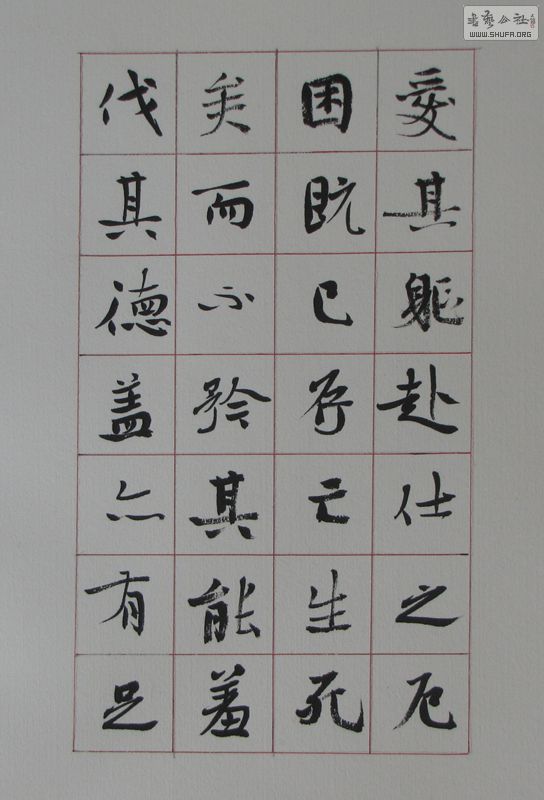 書藝公社
WWW.SHUFA.ORG
愛其躯赴仕之厄
困既已存亡生死
矣而不矜其能羞
伐其德盖亦有足